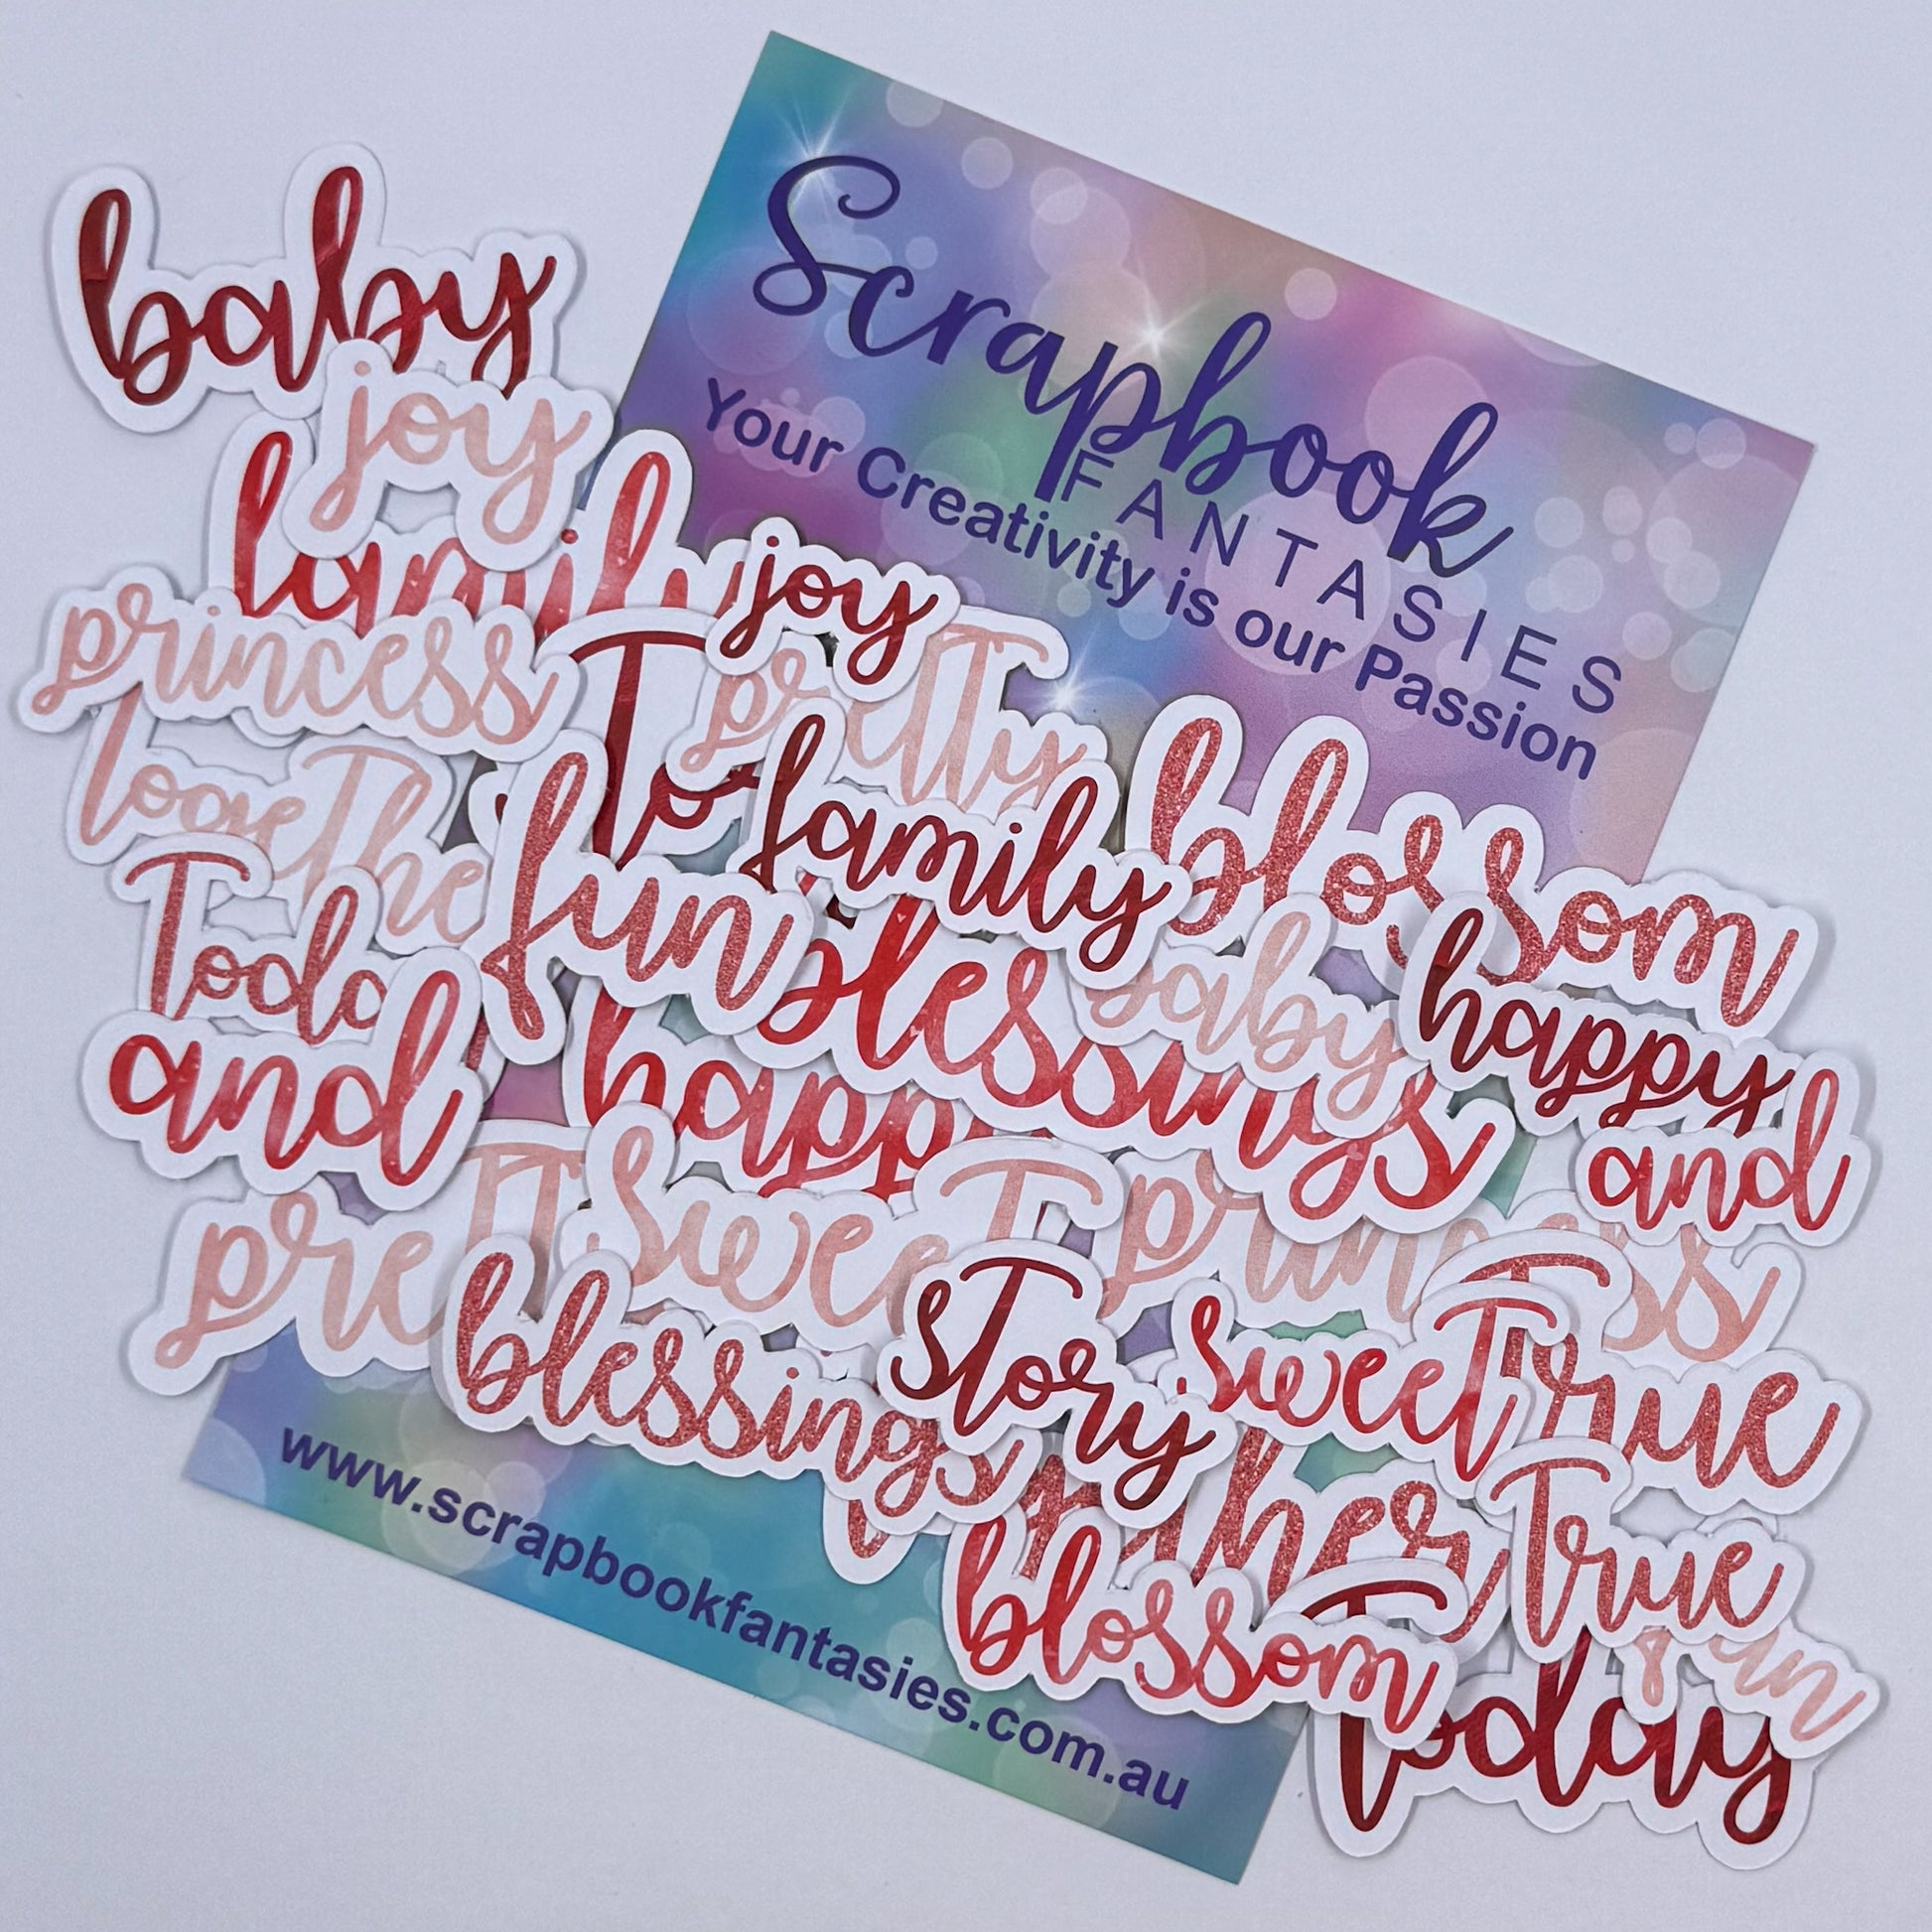 Scrapbook
FANTASIES
Your Creativity is our Passion
baby
joy
family
joy
princess
pretty
To
family
blossom
fun
blessings
baby
happy
and
and
sweet
princess
blessings
story
sweet
True
True
blossom
Today
www.scrapbookfantasies.com.au